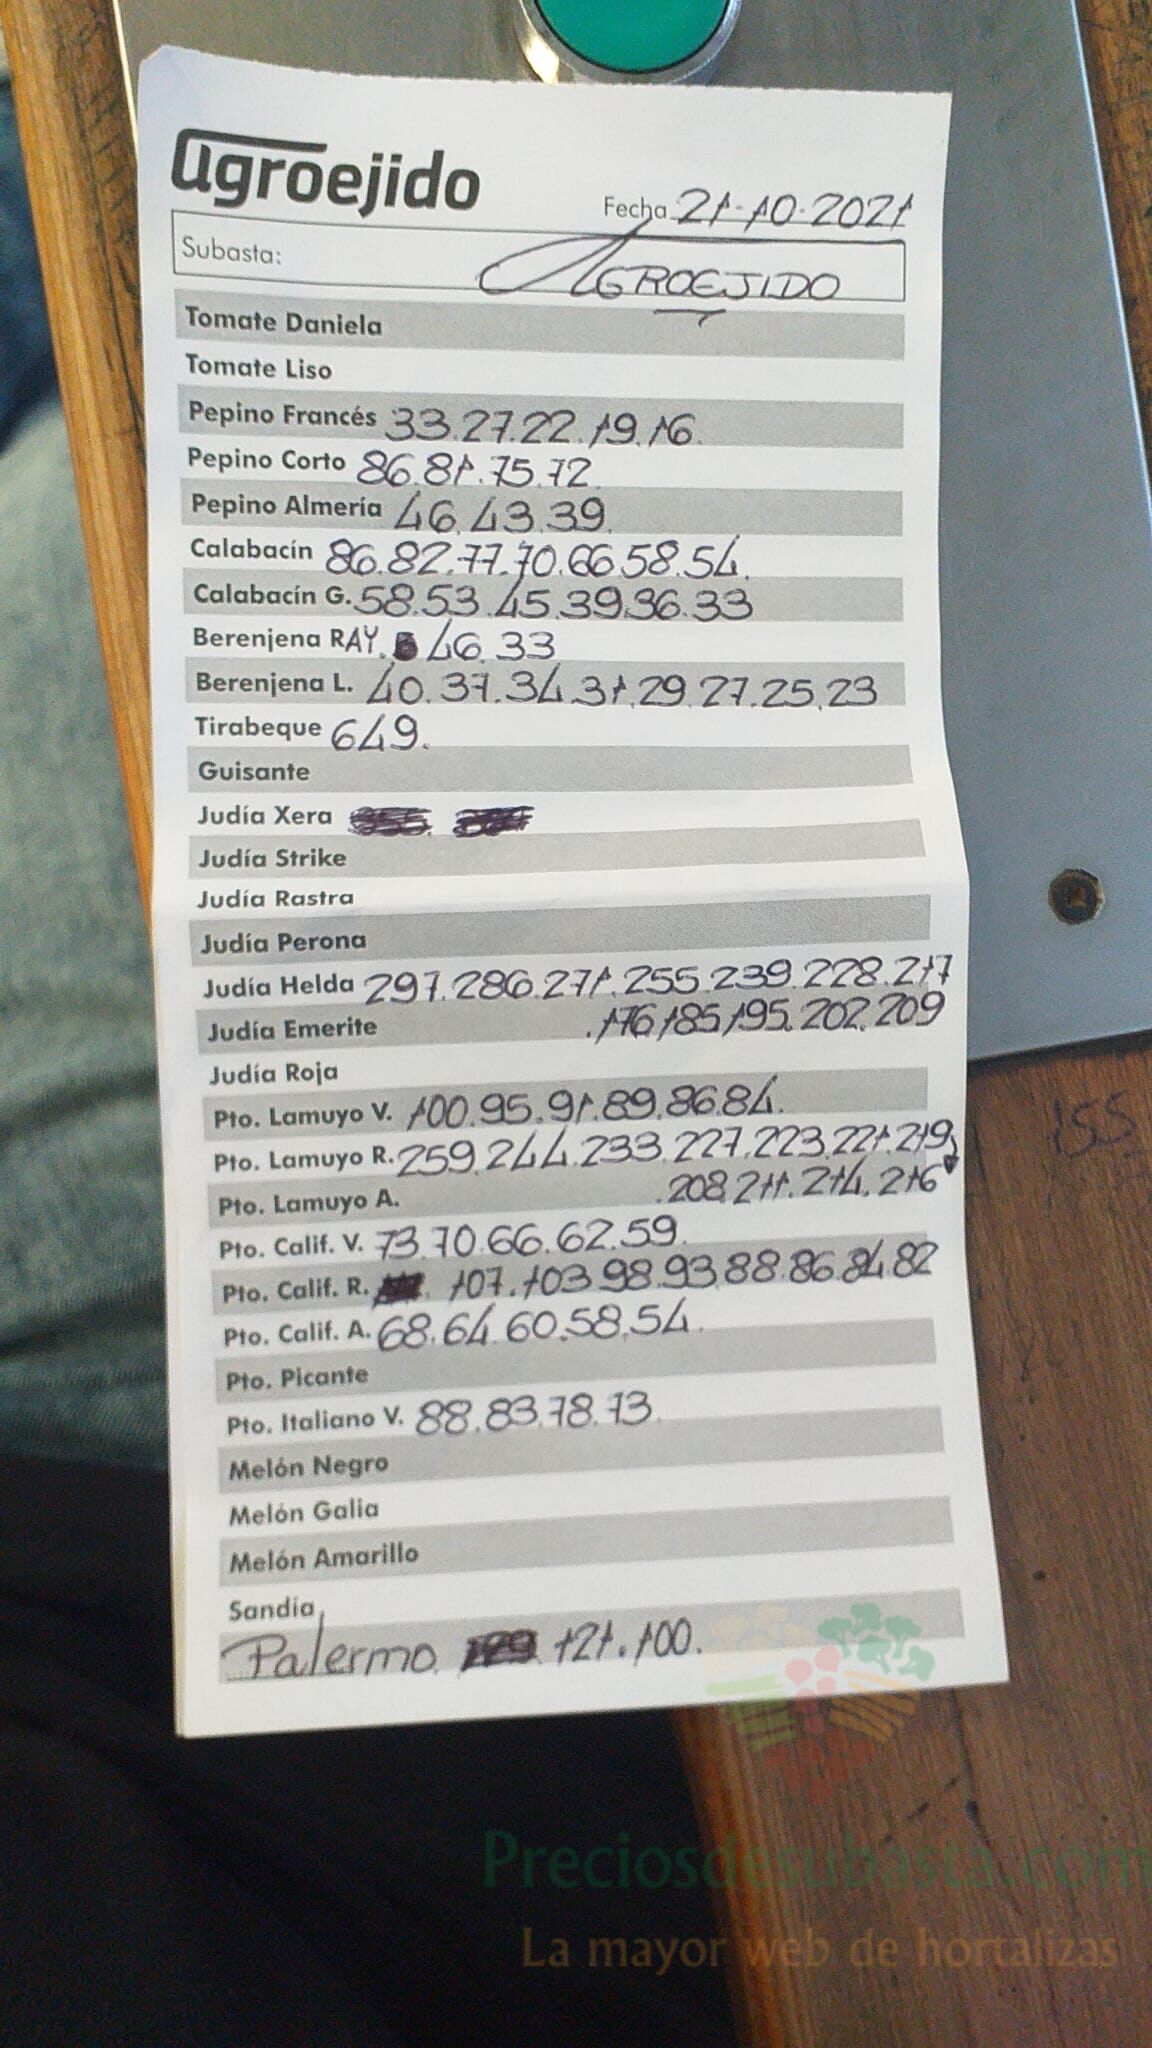 agroejido
Fecha 21-10-2021
Subasta: AGROEJIDO
Tomate Daniela
Tomate Liso
Pepino Francés 33.27.22.19.16.
Pepino Corto 86.81.75.72.
Pepino Almería 46.43.39.
Calabacín 86.82.77.70.66.58.54.
Calabacín G. 58.53.45.39.36.33
Berenjena RAY. 46.33
Berenjena L. 40.37.34.31.29.27.25.23
Tirabeque 649.
Guisante
Judía Xera
Judía Strike
Judía Rastra
Judía Perona
Judía Helda 297.286.271.255.239.228.217
Judía Emerite .176.185.195.202.209
Judía Roja
Pto. Lamuyo V. 100.95.91.89.86.84.
Pto. Lamuyo R. 259.244.233.227.223.221.219
Pto. Lamuyo A. .208.211.214.216
Pto. Calif. V. 73.70.66.62.59.
Pto. Calif. R. 107.103.98.93.88.86.84.82
Pto. Calif. A. 68.64.60.58.54.
Pto. Picante
Pto. Italiano V. 88.83.78.73.
Melón Negro
Melón Galia
Melón Amarillo
Sandía
Palermo 121.100.
155
Preciosdesubasta.com
La mayor web de hortalizas